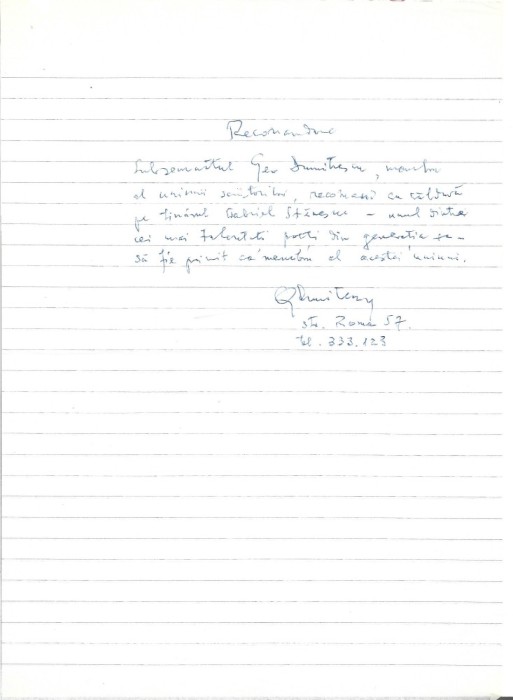 Recomandare
Subsemnatul Geo Dumitrescu, membru
al uniunii scriitorilor, recomand cu căldură
pe tînărul Gabriel Stănescu – unul dintre
cei mai talentati poeti din generatia sa –
să fie primit ca membru al acestei uniuni.
GDumitrescu
str. Roma 57.
tel. 333.123